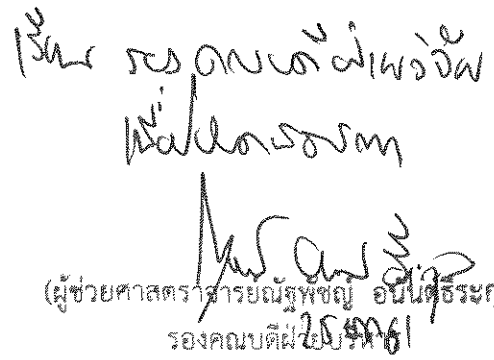 เรียน รองคณบดีฝ่ายวิจัย
เพื่อโปรดพิจารณา
(ผู้ช่วยศาสตราจารย์ณัฐพัชญ์ อนันต์ธีระกุ
รองคณบดีฝ่ายบริหาร